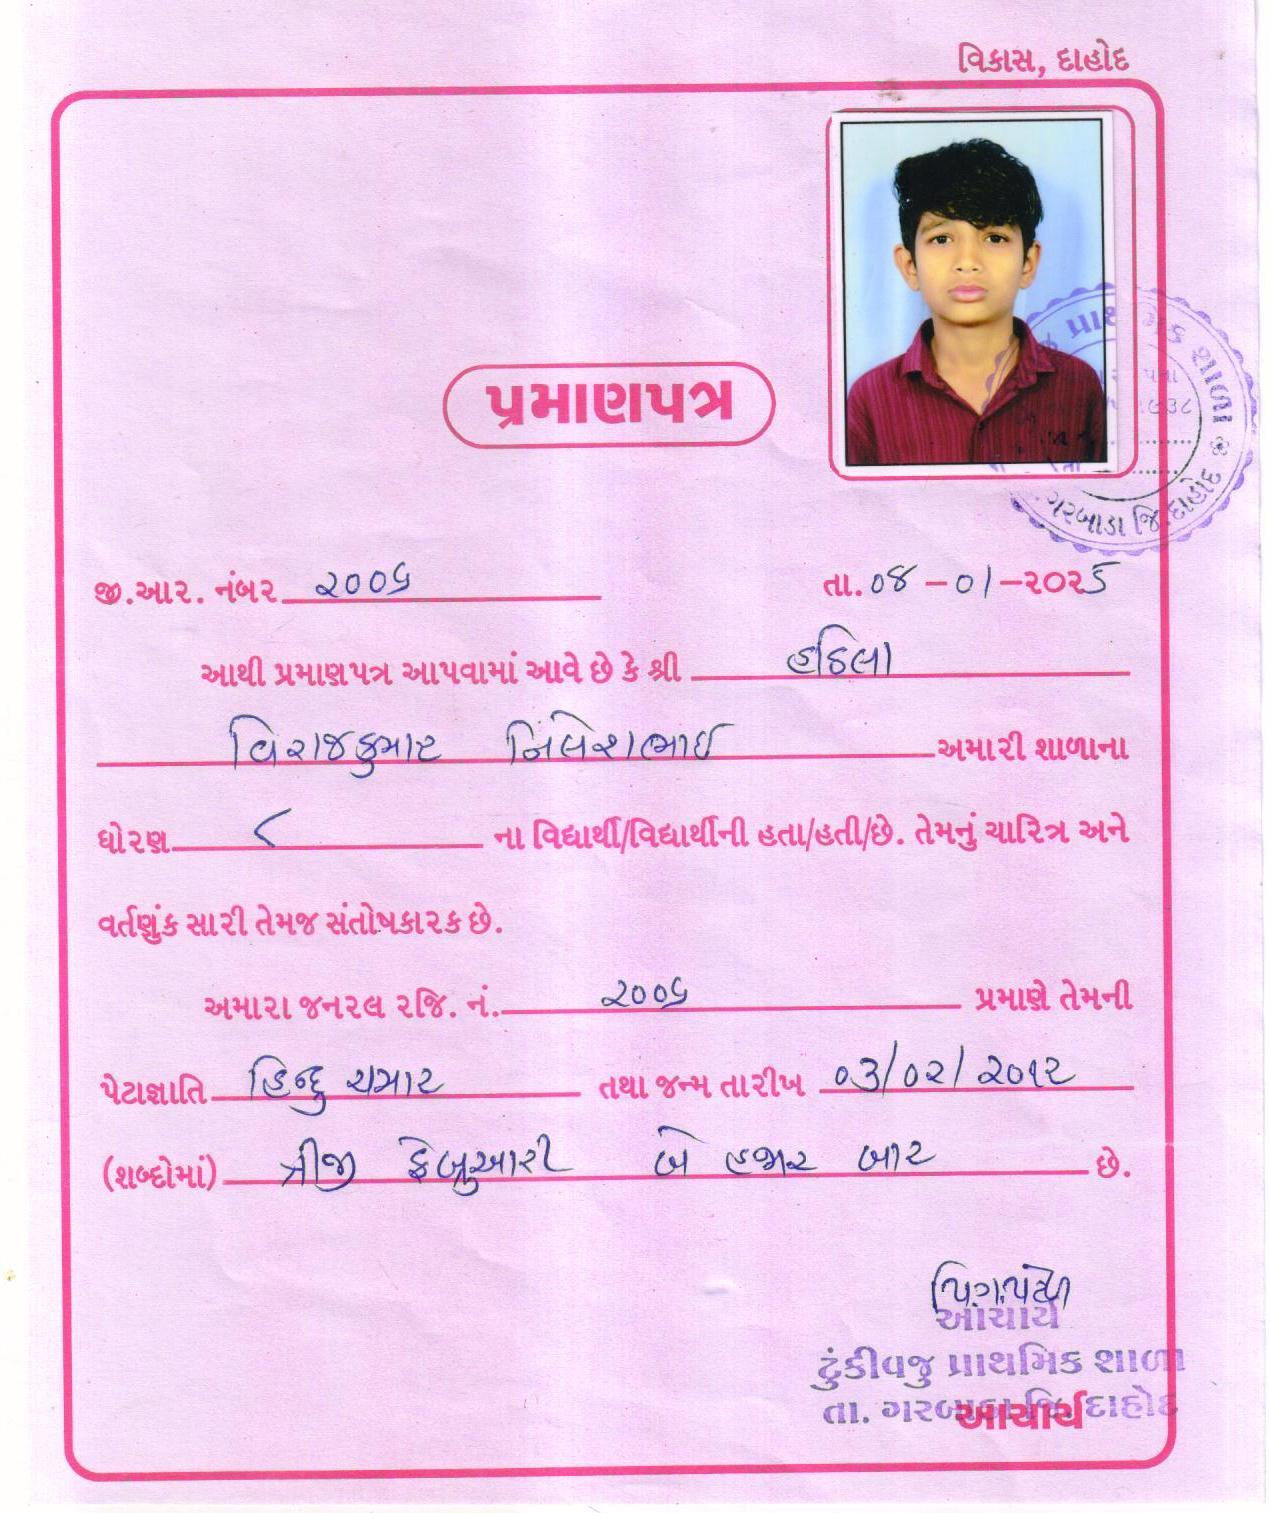 વિકાસ, દાહોદ
પ્રમાણપત્ર
જી.આર. નંબર ૨૦૦૬
તા. ૦૪ - ૦૧ - ૨૦૨૫
આથી પ્રમાણપત્ર આપવામાં આવે છે કે શ્રી હઠિલા
વિરાજકુમાર નિલેશભાઈ અમારી શાળાના
ધોરણ ૮ ના વિદ્યાર્થી/વિદ્યાર્થીની હતા/હતી/છે. તેમનું ચારિત્ર અને
વર્તણુંક સારી તેમજ સંતોષકારક છે.
અમારા જનરલ રજિ. નં. ૨૦૦૬ પ્રમાણે તેમની
પેટાજ્ઞાતિ હિન્દુ ચમાર તથા જન્મ તારીખ ૦૩/૦૨/૨૦૧૨
(શબ્દોમાં) ત્રીજી ફેબ્રુઆરી બે હજાર બાર છે.
આચાર્ય
ટુંકીવજુ પ્રાથમિક શાળા
તા. ગરબાડા જિ. દાહોદ
આચાર્ય
શાળા
ગરબાડા જિ. દાહોદ